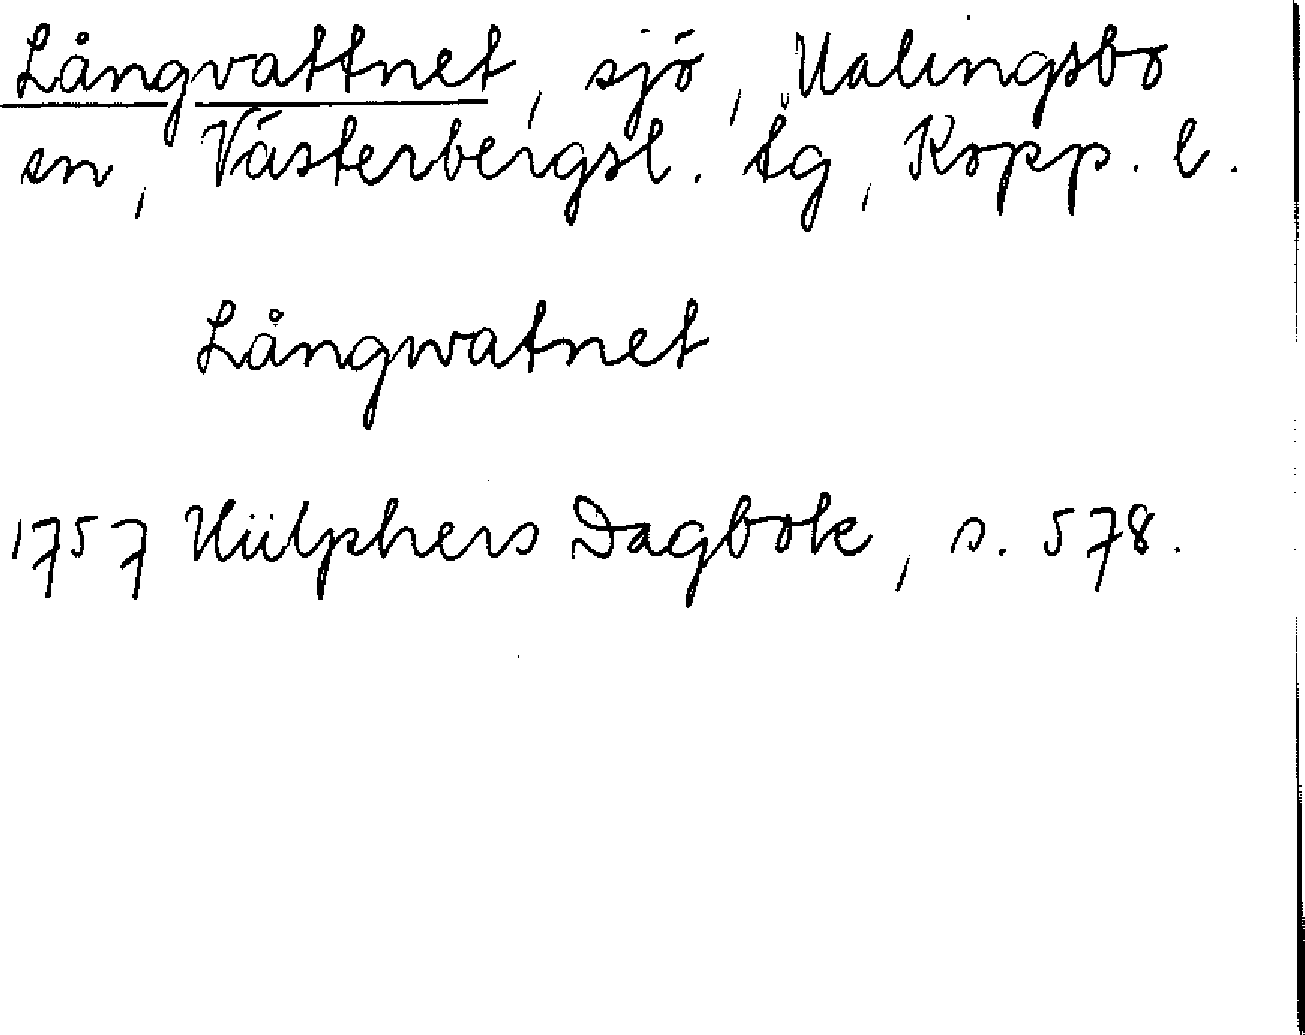 Långvattnet, sjö, Malingsbo
sn, Västerbergsl. tg, Kopp. l.
Långwatnet
1757 Hülphers Dagbok, s. 578.